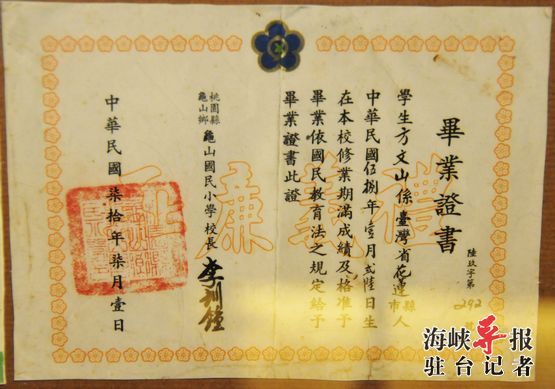 畢業證書
陸玖字第
292
學生方文山係臺灣省花蓮縣市人
中華民國伍捌年壹月貳陸日生
在本校修業期滿成績及格准予
畢業依國民教育法之規定給予
畢業證書此證
桃園縣
龜山鄉
龜山國民小學校長 李
中華民國柒拾年柒月壹日
禮義廉
海峡导报
驻台记者